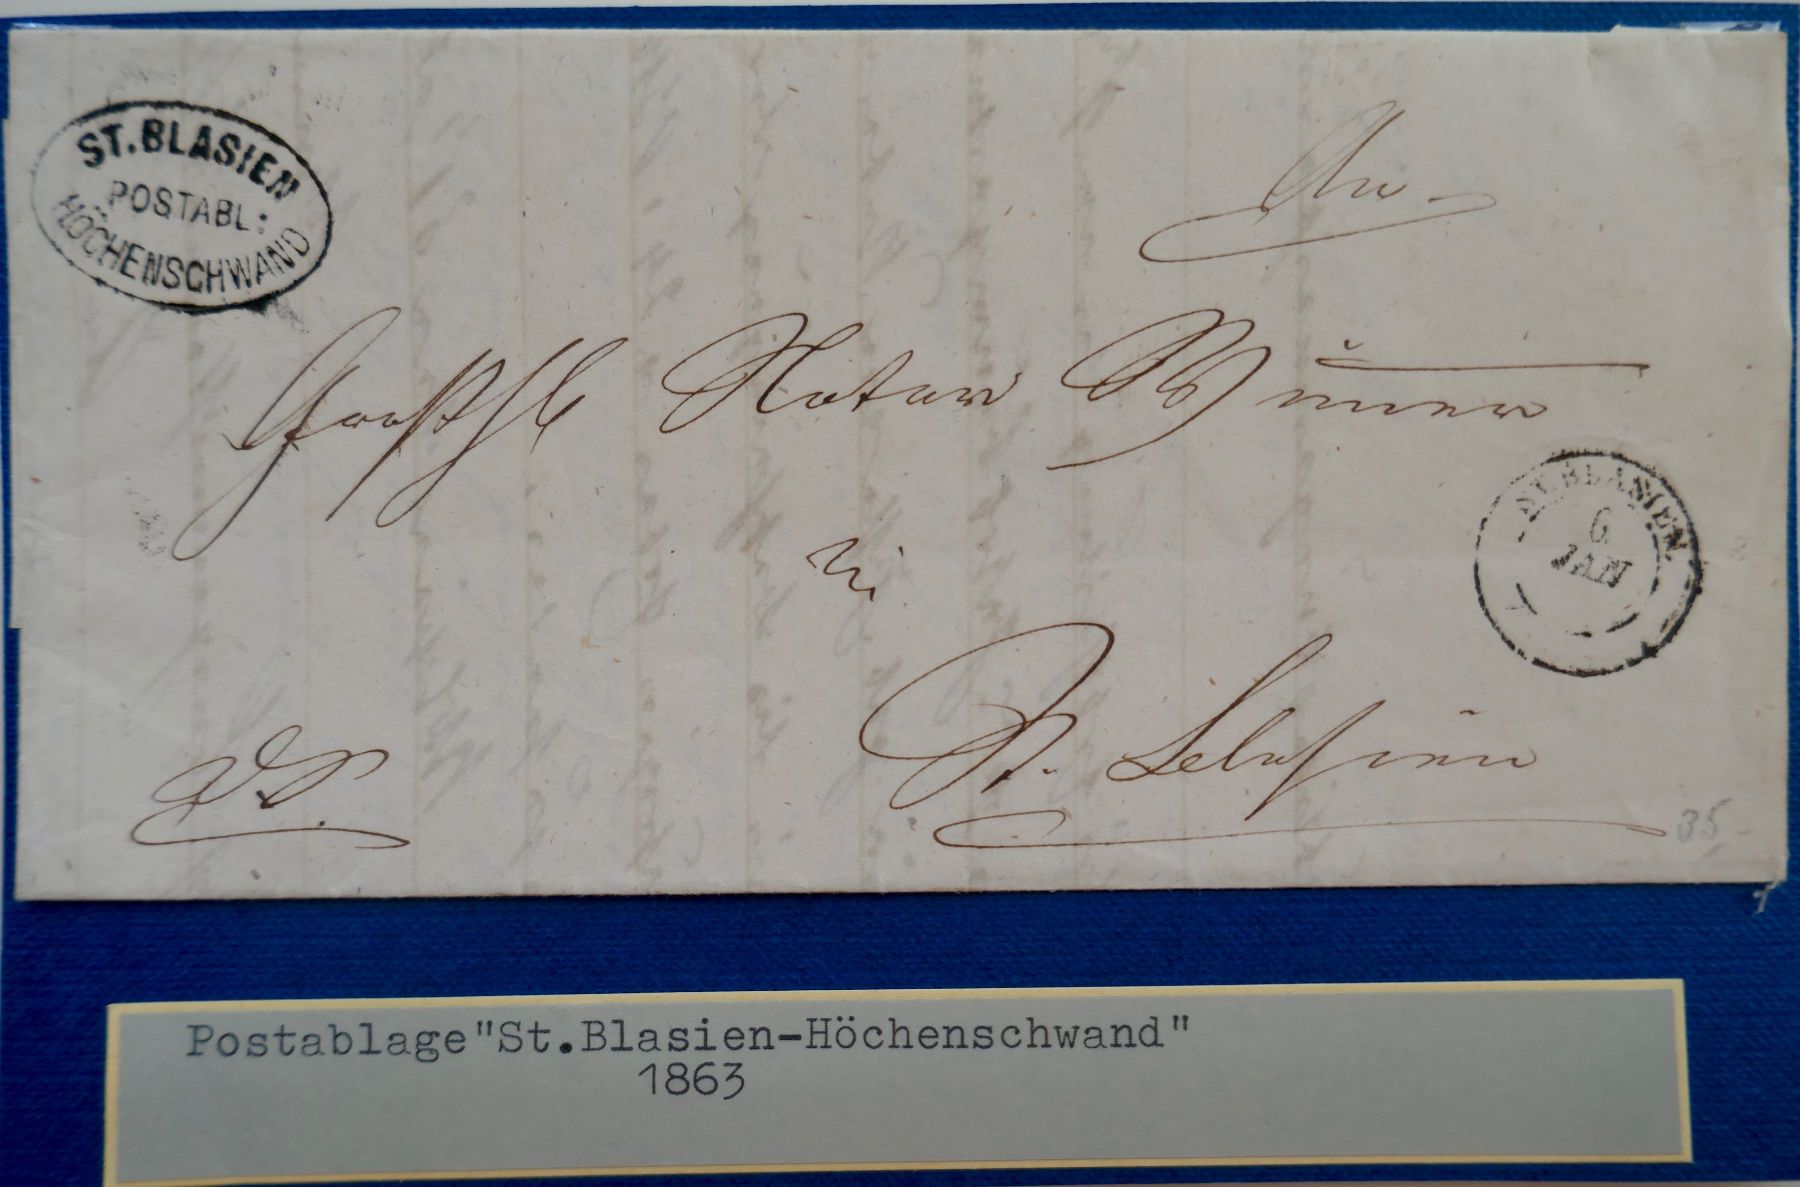 ST. BLASIEN
POSTABL:
HÖCHENSCHWAND
An
Großh Notar
ST. BLASIEN
6
JAN
in
St. Blasien
D. S.
35
Postablage "St.Blasien-Höchenschwand"
1863